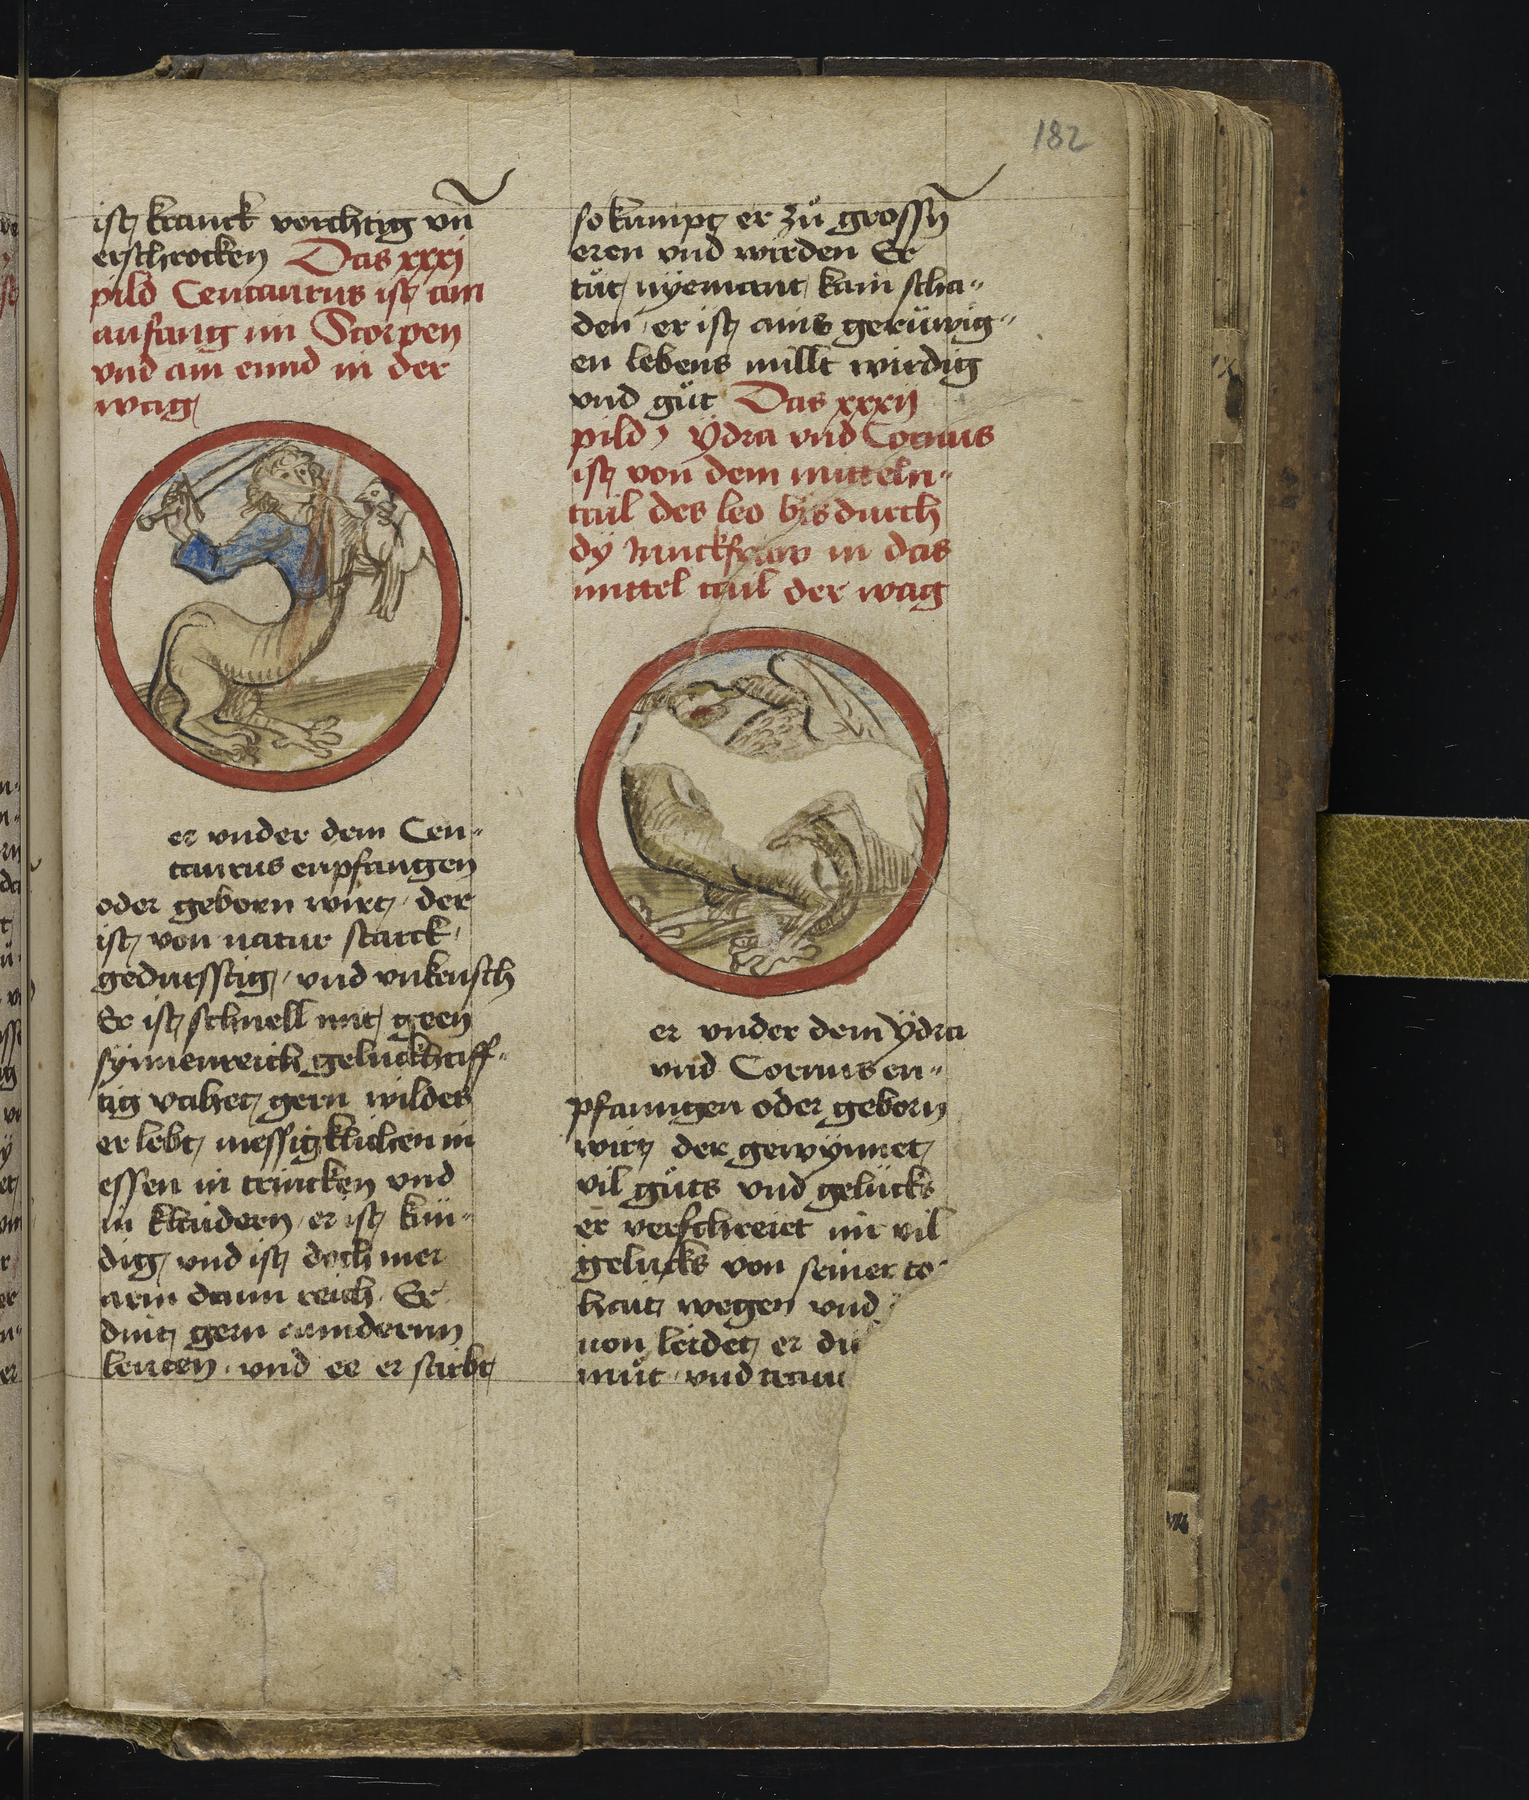 182
ist kranck vorchtig vn̄
erschrocken Das xxxi
pild Centaurus ist am
anfang im Scorpen
vnd am ennd in der
wag
er vnder dem Cen-
taurus enpfangen
oder geborn wirt der
ist von natur starck
gedursstig vnd vnkeusch
Er ist schnell mit geen
synnenreich geluckhaff-
tig vahet gern wildes
er lebt messigklichen in
essen in trincken vnd
in klaidern er ist kün-
dig vnd ist doch mer
arm dann reich Er
dint gern anndernn
leuten vnd ee er stirbt
so kumpt er zů grossn̄
eren vnd wirden Er
tůt nyemant kain scha-
den er ist ains gerüwig-
en lebens millt wirdig
vnd gůt Das xxxii
pild ydra vnd Coruus
ist von dem mitteln
tail des leo bis durch
dy Junckfraw in das
mittel tail der wag
er vnder dem ydra
vnd Coruus en-
pfanngen oder geborn
wirt der gewynnet
vil gůts vnd gelücks
er verschreiet im vil
gelucks von seiner to-
hait wegen vnd
uon leidet er
můt vnd